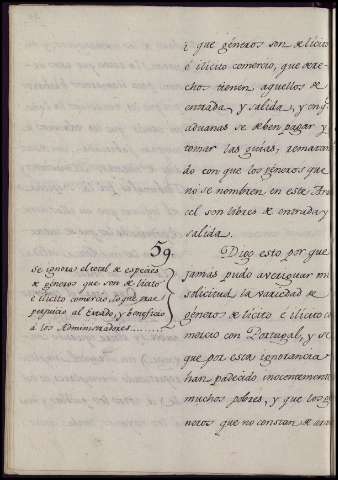 i que géneros son de licito
é ilicito comercio, que dere-
chos tienen aquellos de
entrada y salida, y en q.e
aduanas se deben pagar y
tomar las guias; rematan
do con que los géneros que
no se nombren en este Aran
cel son libres de entrada y
salida.
59.
Se ignora el total de especies
de géneros que son de licito
é ilicito comercio, lo que trae
perjuicio al Estado, y beneficio
á los Administradores
Digo esto por que
jamas pudo averiguar mi
solicitud la variedad de
géneros de licito é ilicito co
mercio con Portugal, y se
que por esta ignorancia
han padecido inocentemente
muchos pobres, y que los ge
neros que no constan de